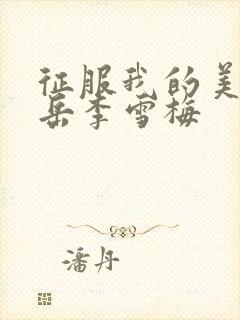 征服我的美
岳李雪梅
潘丹